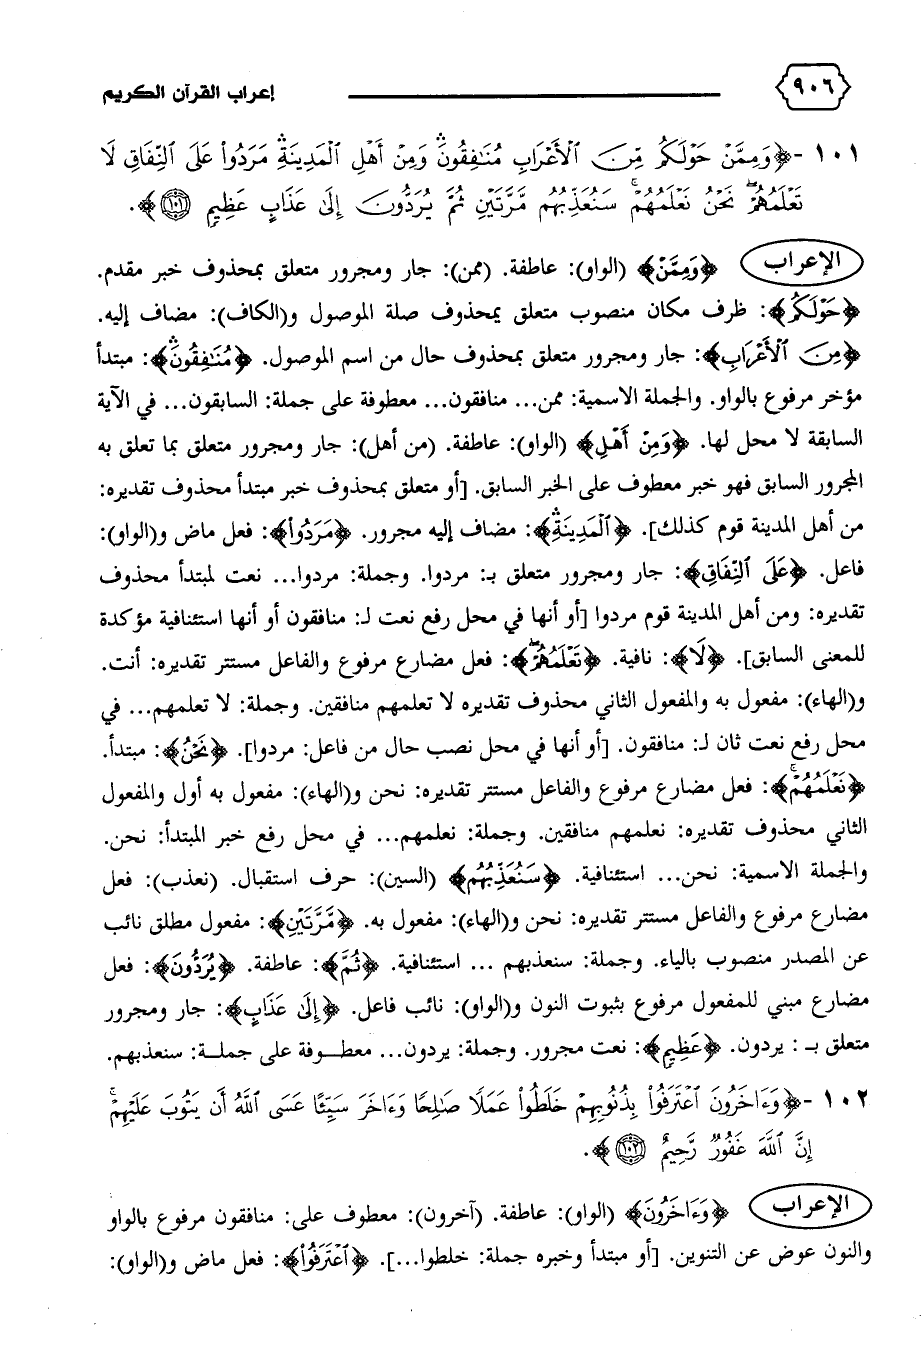 ٩٠٦ إعراب القرآن الكريم
١٠١ - ﴿وَمِمَّنْ حَوْلَكُم مِّنَ ٱلْأَعْرَابِ مُنَٰفِقُونَۖ وَمِنْ أَهْلِ ٱلْمَدِينَةِۖ مَرَدُوا۟ عَلَى ٱلنِّفَاقِ لَا
تَعْلَمُهُمْۖ نَحْنُ نَعْلَمُهُمْۚ سَنُعَذِّبُهُم مَّرَّتَيْنِ ثُمَّ يُرَدُّونَ إِلَىٰ عَذَابٍ عَظِيمٍ ١٠١﴾.
الإعراب ﴿وَمِمَّنْ﴾ (الواو): عاطفة. (ممن): جار ومجرور متعلق بمحذوف خبر مقدم.
﴿حَوْلَكُم﴾: ظرف مكان منصوب متعلق بمحذوف صلة الموصول و(الكاف): مضاف إليه.
﴿مِنَ ٱلْأَعْرَابِ﴾: جار ومجرور متعلق بمحذوف حال من اسم الموصول. ﴿مُنَٰفِقُونَۖ﴾: مبتدأ
مؤخر مرفوع بالواو. والجملة الاسمية: ممن... منافقون... معطوفة على جملة: السابقون... في الآية
السابقة لا محل لها. ﴿وَمِنْ أَهْلِ﴾ (الواو): عاطفة. (من أهل): جار ومجرور متعلق بما تعلق به
المجرور السابق فهو خبر معطوف على الخبر السابق. [أو متعلق بمحذوف خبر مبتدأ محذوف تقديره:
من أهل المدينة قوم كذلك]. ﴿ٱلْمَدِينَةِۖ﴾: مضاف إليه مجرور. ﴿مَرَدُوا۟﴾: فعل ماض و(الواو):
فاعل. ﴿عَلَى ٱلنِّفَاقِ﴾: جار ومجرور متعلق بـ: مردوا. وجملة: مردوا... نعت لمبتدأ محذوف
تقديره: ومن أهل المدينة قوم مردوا [أو أنها في محل رفع نعت لـ: منافقون أو أنها استئنافية مؤكدة
للمعنى السابق]. ﴿لَا﴾: نافية. ﴿تَعْلَمُهُمْۖ﴾: فعل مضارع مرفوع والفاعل مستتر تقديره: أنت.
و(الهاء): مفعول به والمفعول الثاني محذوف تقديره لا تعلمهم منافقين. وجملة: لا تعلمهم... في
محل رفع نعت ثان لـ: منافقون. [أو أنها في محل نصب حال من فاعل: مردوا]. ﴿نَحْنُ﴾: مبتدأ.
﴿نَعْلَمُهُمْۚ﴾: فعل مضارع مرفوع والفاعل مستتر تقديره: نحن و(الهاء): مفعول به أول والمفعول
الثاني محذوف تقديره: نعلمهم منافقين. وجملة: نعلمهم... في محل رفع خبر المبتدأ: نحن.
والجملة الاسمية: نحن... استئنافية. ﴿سَنُعَذِّبُهُم﴾ (السين): حرف استقبال. (نعذب): فعل
مضارع مرفوع والفاعل مستتر تقديره: نحن و(الهاء): مفعول به. ﴿مَّرَّتَيْنِ﴾: مفعول مطلق نائب
عن المصدر منصوب بالياء. وجملة: سنعذبهم ... استئنافية. ﴿ثُمَّ﴾: عاطفة. ﴿يُرَدُّونَ﴾: فعل
مضارع مبني للمفعول مرفوع بثبوت النون و(الواو): نائب فاعل. ﴿إِلَىٰ عَذَابٍ﴾: جار ومجرور
متعلق بـ : يردون. ﴿عَظِيمٍ﴾: نعت مجرور. وجملة: يردون... معطوفة على جملة: سنعذبهم.
١٠٢ - ﴿وَءَاخَرُونَ ٱعْتَرَفُوا۟ بِذُنُوبِهِمْ خَلَطُوا۟ عَمَلًا صَٰلِحًا وَءَاخَرَ سَيِّئًا عَسَى ٱللَّهُ أَن يَتُوبَ عَلَيْهِمْۚ
إِنَّ ٱللَّهَ غَفُورٌ رَّحِيمٌ ١٠٢﴾.
الإعراب ﴿وَءَاخَرُونَ﴾ (الواو): عاطفة. (آخرون): معطوف على: منافقون مرفوع بالواو
والنون عوض عن التنوين. [أو مبتدأ وخبره جملة: خلطوا...]. ﴿ٱعْتَرَفُوا۟﴾: فعل ماض و(الواو):